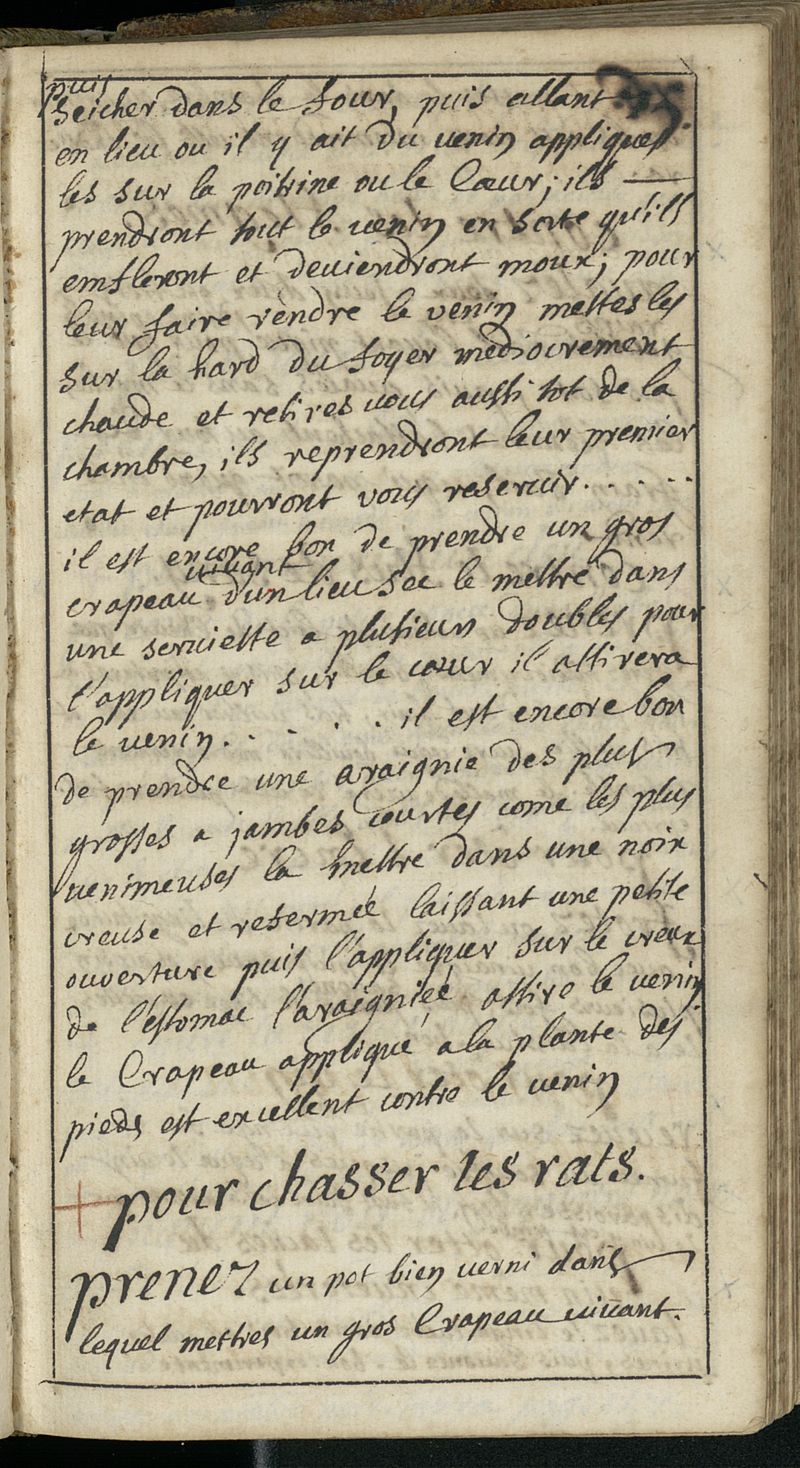 puis
seicher dans le four, puis allant
en lieu ou il y ait du venin appliques
les sur la poitrine ou le Cœur; ils —
prendront tout le venin en sorte qu'ils
emfleront et deviendront moux; pour
leur faire rendre le venin mettes les
sur la hard du foyer mediocrement
chaude et retires vous aussi tot de la
chambre, ils reprendront leur premier
etat et pourront vous reservir . . . . .
il est encore bon de prendre un gros
vivant
crapeau d'un lieu sec le mettre dans
une serviette a plusieurs doubles pour
l'appliquer sur le cœur il attirera
le venin . . . . . il est encore bon
de prendre une araignie des plus
grosses a jambes courtes come les plus
venimeuses la mettre dans une noix
creuse et refermée laissant une petite
ouverture puis l'appliquer sur le creux
de l'éstomac l'araigniéé attire le venin
le Crapeau appliqué a la plante des
pieds est excellent contre le venin
pour chasser les rats.
prenez un pot bien verni dans
lequel mettres un gros Crapeau vivant.